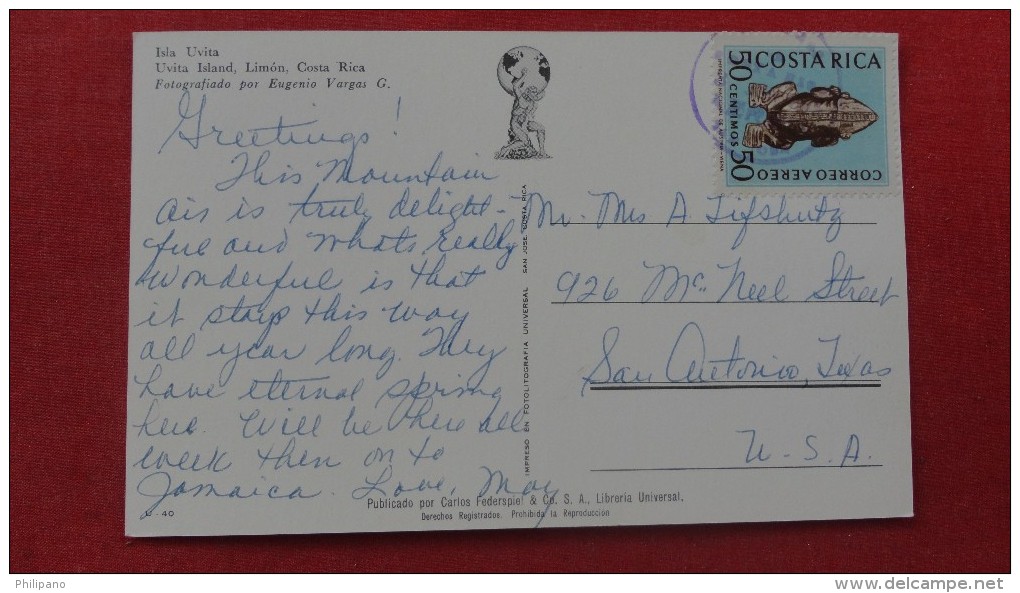 Isla Uvita
Uvita Island, Limón, Costa Rica
Fotografiado por Eugenio Vargas G.
Greetings!
This Mountain
air is truly delight-
ful and whats really
wonderful is that
it stays this way
all year long. They
have eternal spring
here. Will be here all
week then on to
Jamaica. Love, May
U-40
IMPRESO EN FOTOLITOGRAFIA UNIVERSAL SAN JOSE COSTA RICA
COSTA RICA
50 CENTIMOS 50
CORREO AEREO
Mr. Mrs A. Lifshutz
926 Mc Neel Street
San Antonio, Texas
U.S.A.
Publicado por Carlos Federspiel & Co. S. A., Librería Universal.
Derechos Registrados. Prohibida la Reproducción
Philipano
www.delcampe.net